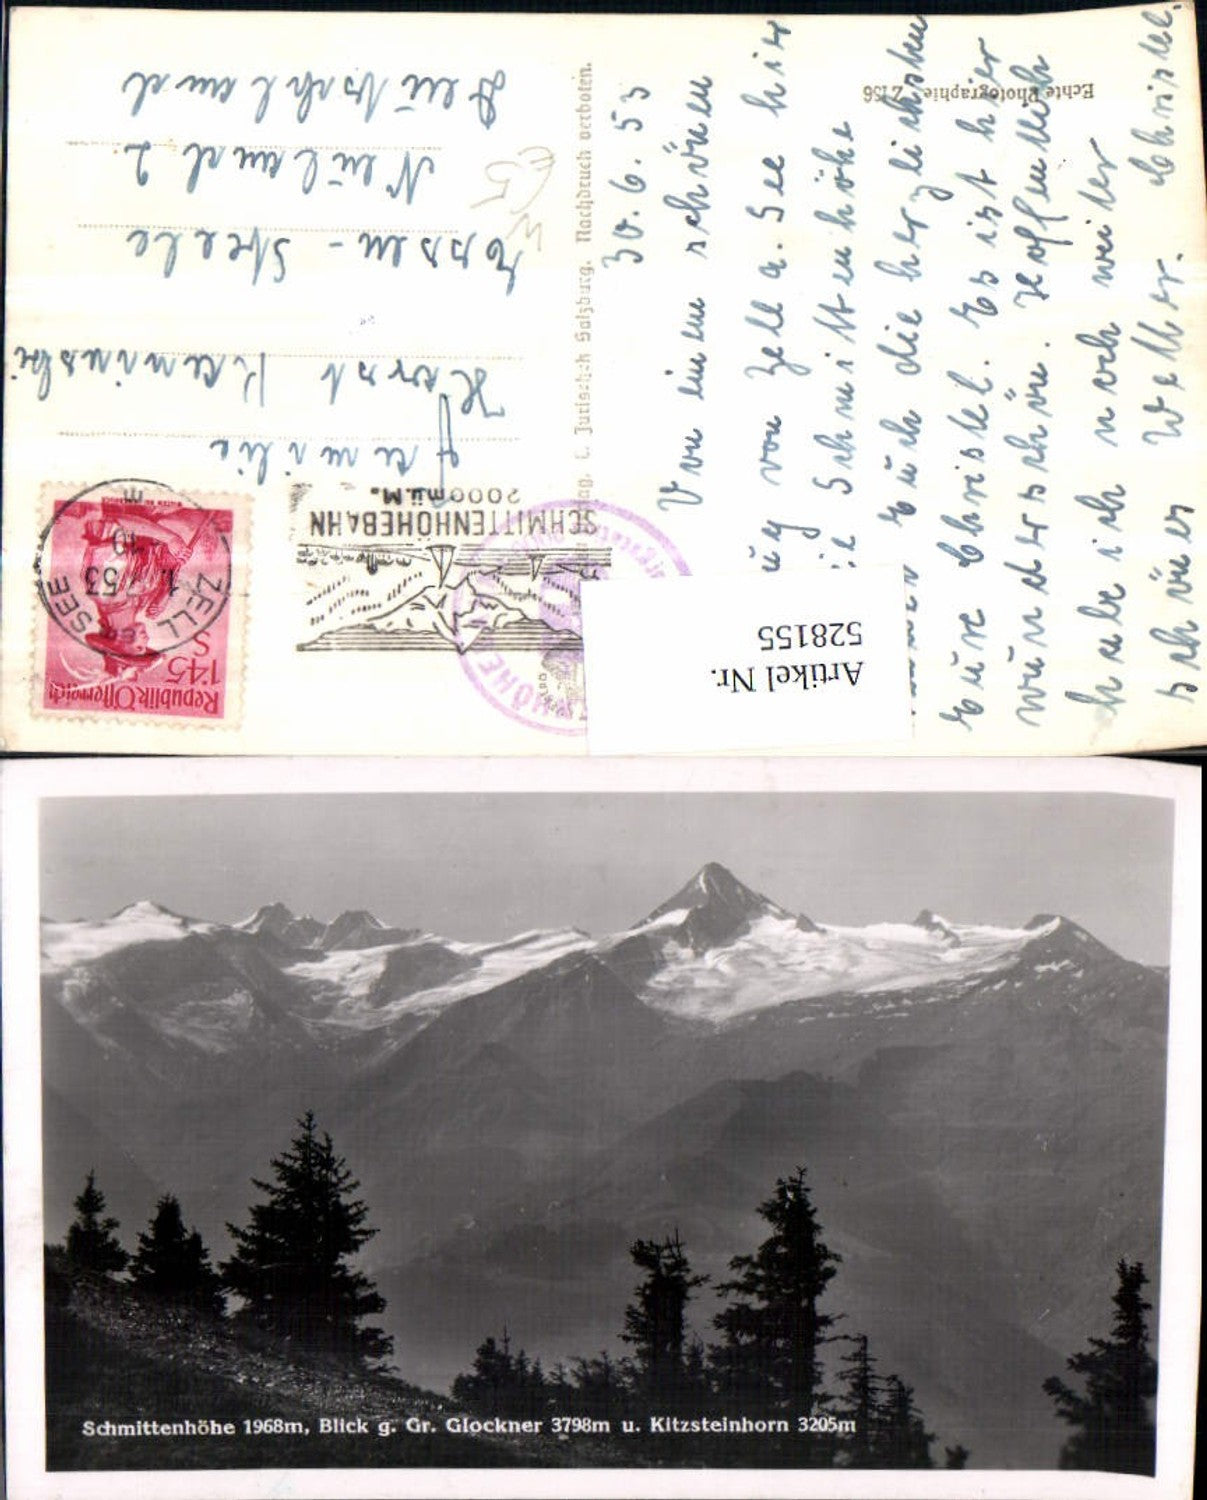 30.6.53
Von einem schönen
von Zell a. See hier
Schmittenhöhe
Euch die herzlichsten
Eure Christel. Es ist hier
wunderschön. Hoffentlich
habe ich noch weiter
schönes Wetter. Christel.
Familie
Horst Kaminski
Essen - Steele
Neuland 2
Deutschland
Echte Photographie Z 156
C. Jurischek Salzburg. Nachdruck verboten.
SCHMITTENHÖHEBAHN
2000 m ü. M.
ZELL AM SEE
1. 7. 53 - 10
Republik Österreich
1·45
S
Artikel Nr.
528155
Schmittenhöhe 1968m, Blick g. Gr. Glockner 3798m u. Kitzsteinhorn 3205m